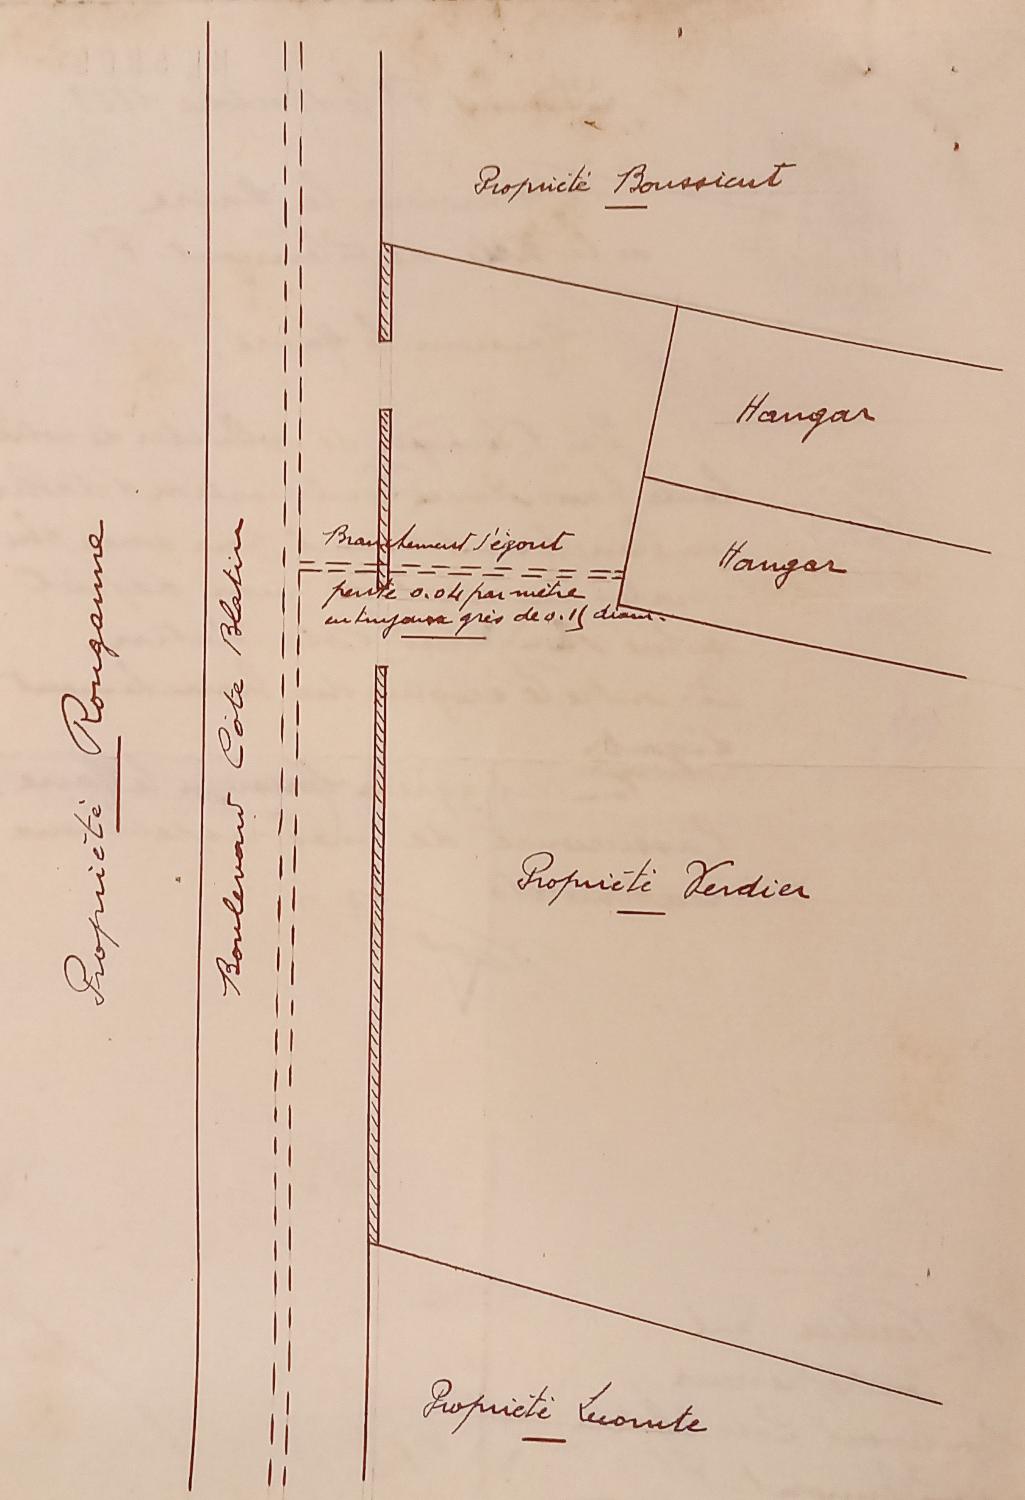 Propriété Boussicut
Hangar
Hangar
Branchement d'égout
pente 0.04 par mètre
en tuyaux grès de 0.15 diam.
Propriété Rouganne
Boulevard Côte Blatin
Propriété Verdier
Propriété Lecomte